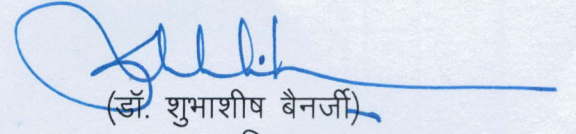 (डॉ. शुभाशीष बैनर्जी)